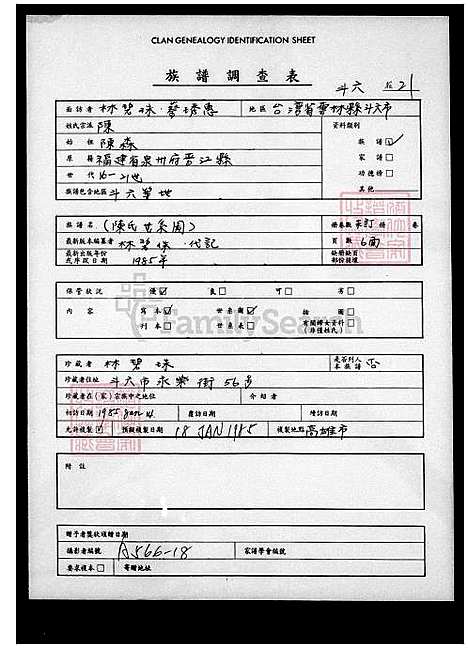 CLAN GENEALOGY IDENTIFICATION SHEET
族譜調查表
斗六 21
面訪者 林碧珠·蔡琇惠 地區 台灣省雲林縣斗六市
姓氏宗派 陳 資料類別
始祖 陳森 族譜☑
原籍 福建省泉州府晉江縣 家譜□
世代 16-21世 功德榜□
族譜包含地區 斗六等地 其他
族譜名 (陳氏世系圖) 冊卷數 未訂 冊 卷
最新版本編纂者 林碧珠·代記 頁數 6面
最新出版年份或序跋日期 1985年 缺冊缺頁部份損壞
保管狀況 優☑ 良□ 可□ 劣□
內容 寫本☑ 世系圖☑ 插圖□
刊本□ 世系表□ 有關婦女資料(非僅姓氏)□
FamilySearch
珍藏者 林碧珠 是否列入本族譜 否
珍藏者住址 斗六市永樂街56號
珍藏者在(家)宗族中之地位 介紹者
初訪日期 1985 Jan 复訪日期 續訪日期
允許複製☑ 預擬複製日期 18 JAN 1985 複製地點 高雄市
附註
贈予者獎狀頒贈日期
攝影者編號 A566-18 家譜學會編號
要求複本□ 寄贈地址